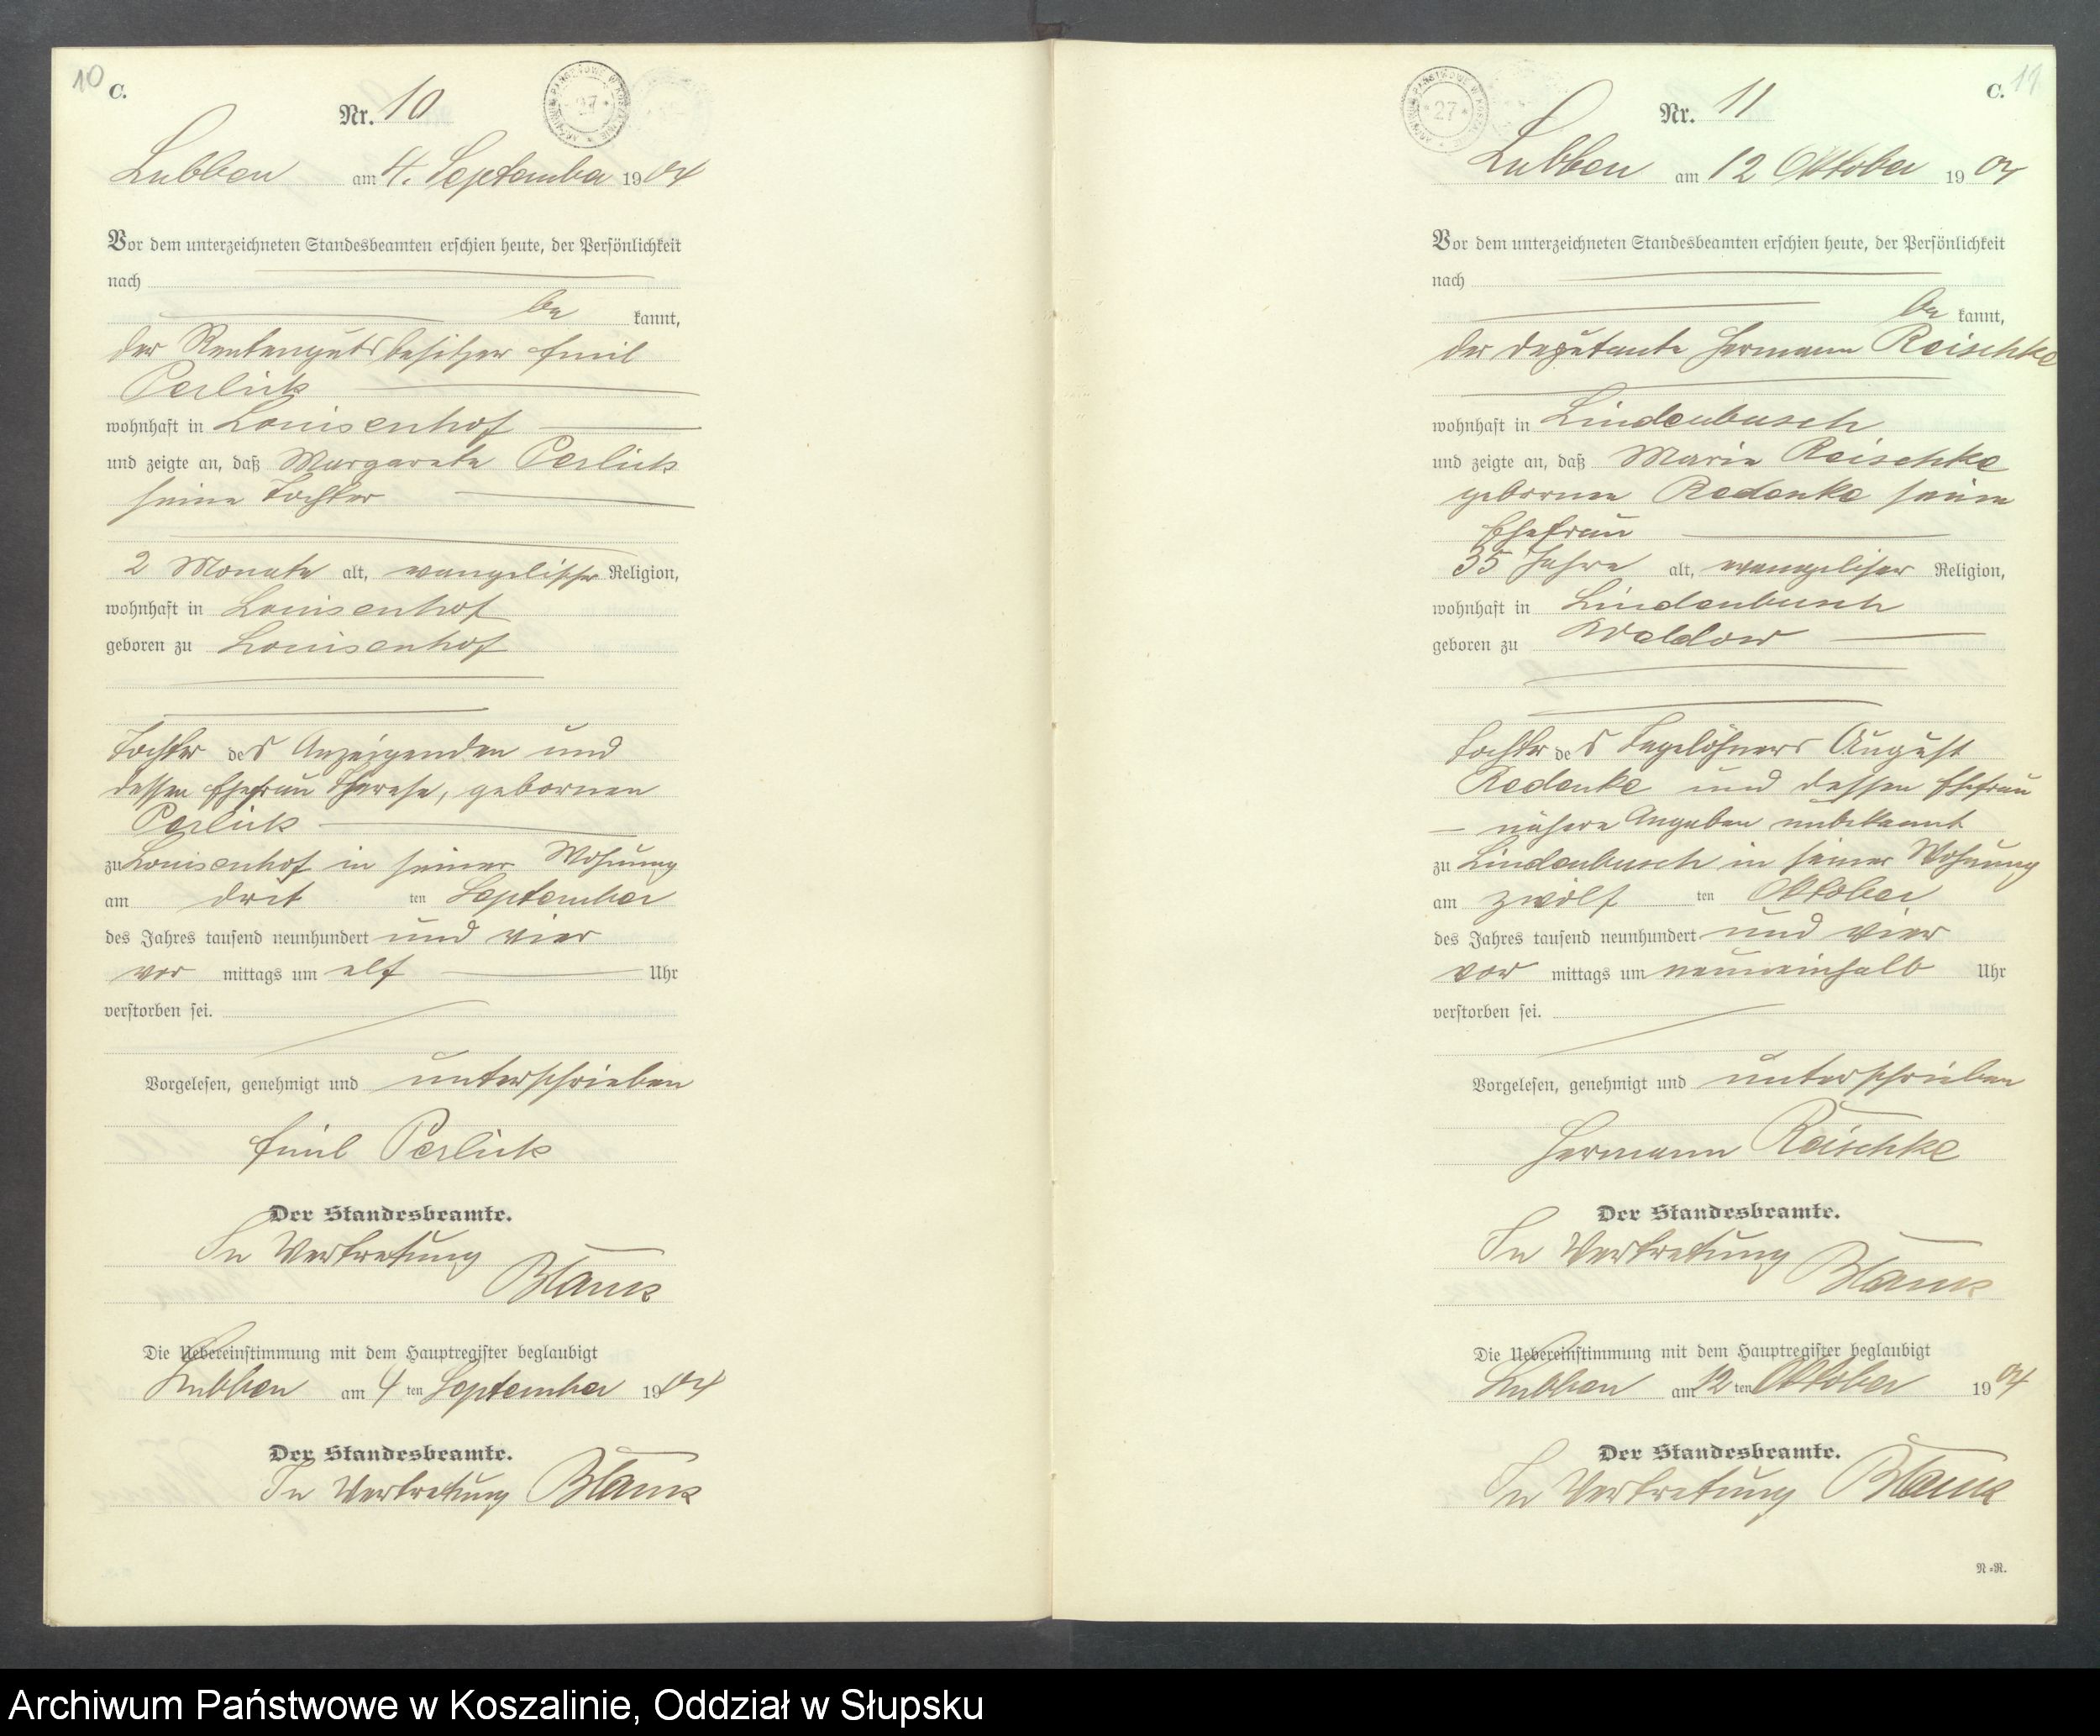 10
C.
Nr. 10
27
Lubben am 4. September 1904
Vor dem unterzeichneten Standesbeamten erschien heute, der Persönlichkeit
nach
be kannt,
der Rentengutsbesitzer Emil
Perlick
wohnhaft in Louisenhof
und zeigte an, daß Margarete Perlick
seine Tochter
2 Monate alt, evangelischer Religion,
wohnhaft in Louisenhof
geboren zu Louisenhof
Tochter des Anzeigenden und
dessen Ehefrau Therese, geborenen
Perlick
zu Louisenhof in seiner Wohnung
am drit ten September
des Jahres tausend neunhundert und vier
vor mittags um elf Uhr
verstorben sei.
Vorgelesen, genehmigt und unterschrieben
Emil Perlick
Der Standesbeamte.
In Vertretung
Die Uebereinstimmung mit dem Hauptregister beglaubigt
Lubben am 4 ten September 1904
Der Standesbeamte.
In Vertretung
C. 11
Nr. 11
27
Lubben am 12 Oktober 1904
Vor dem unterzeichneten Standesbeamten erschien heute, der Persönlichkeit
nach
be kannt,
der Deputante Hermann Reischke
wohnhaft in Lindenbusch
und zeigte an, daß Marie Reischke
geborene Redenke seine
Ehefrau
35 Jahre alt, evangelischer Religion,
wohnhaft in Lindenbusch
geboren zu Waldow
Tochter des Tagelöhners August
Redenke und dessen Ehefrau
— nähere Angaben unbekannt
zu Lindenbusch in seiner Wohnung
am zwölf ten Oktober
des Jahres tausend neunhundert und vier
vor mittags um neuneinhalb Uhr
verstorben sei.
Vorgelesen, genehmigt und unterschrieben
Hermann Reischke
Der Standesbeamte.
In Vertretung
Die Uebereinstimmung mit dem Hauptregister beglaubigt
Lubben am 12 ten Oktober 1904
Der Standesbeamte.
In Vertretung
N=R.
Archiwum Państwowe w Koszalinie, Oddział w Słupsku